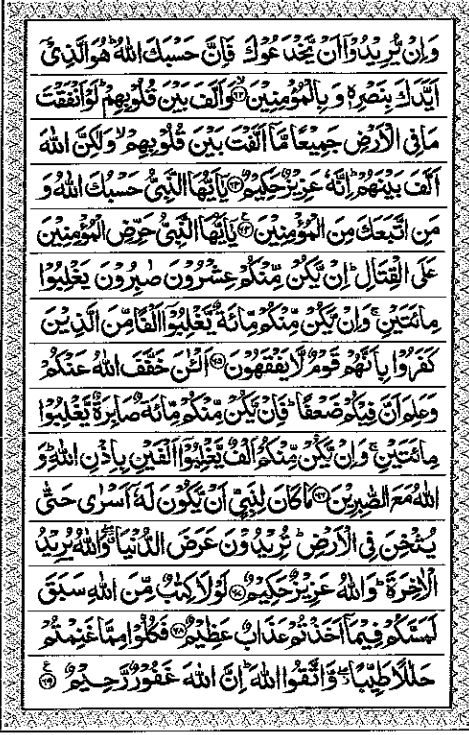 وَاِنْ يُّرِيْدُوْۤا اَنْ يَّخْدَعُوْكَ فَاِنَّ حَسْبَكَ اللّٰهُ ؕ هُوَ الَّذِيْۤ
اَيَّدَكَ بِنَصْرِهٖ وَبِالْمُؤْمِنِيْنَ ۙ﴿۶۲﴾ وَاَلَّفَ بَيْنَ قُلُوْبِهِمْ ؕ لَوْ اَنْفَقْتَ
مَا فِي الْاَرْضِ جَمِيْعًا مَّاۤ اَلَّفْتَ بَيْنَ قُلُوْبِهِمْ ۙ وَلٰكِنَّ اللّٰهَ
اَلَّفَ بَيْنَهُمْ ؕ اِنَّهٗ عَزِيْزٌ حَكِيْمٌ ﴿۶۳﴾ يٰۤاَيُّهَا النَّبِيُّ حَسْبُكَ اللّٰهُ وَ
مَنِ اتَّبَعَكَ مِنَ الْمُؤْمِنِيْنَ ﴿۶۴﴾ يٰۤاَيُّهَا النَّبِيُّ حَرِّضِ الْمُؤْمِنِيْنَ
عَلَى الْقِتَالِ ؕ اِنْ يَّكُنْ مِّنْكُمْ عِشْرُوْنَ صٰبِرُوْنَ يَغْلِبُوْا
مِائَتَيْنِ ۚ وَاِنْ يَّكُنْ مِّنْكُمْ مِّائَةٌ يَّغْلِبُوْۤا اَلْفًا مِّنَ الَّذِيْنَ
كَفَرُوْا بِاَنَّهُمْ قَوْمٌ لَّا يَفْقَهُوْنَ ﴿۶۵﴾ اَلْـٰٔنَ خَفَّفَ اللّٰهُ عَنْكُمْ
وَعَلِمَ اَنَّ فِيْكُمْ ضَعْفًا ؕ فَاِنْ يَّكُنْ مِّنْكُمْ مِّائَةٌ صَابِرَةٌ يَّغْلِبُوْا
مِائَتَيْنِ ۚ وَاِنْ يَّكُنْ مِّنْكُمْ اَلْفٌ يَّغْلِبُوْۤا اَلْفَيْنِ بِاِذْنِ اللّٰهِ ؕ وَ
اللّٰهُ مَعَ الصّٰبِرِيْنَ ﴿۶۶﴾ مَا كَانَ لِنَبِيٍّ اَنْ يَّكُوْنَ لَهٗۤ اَسْرٰى حَتّٰى
يُثْخِنَ فِي الْاَرْضِ ؕ تُرِيْدُوْنَ عَرَضَ الدُّنْيَا ۖ وَاللّٰهُ يُرِيْدُ
الْاٰخِرَةَ ؕ وَاللّٰهُ عَزِيْزٌ حَكِيْمٌ ﴿۶۷﴾ لَوْلَا كِتٰبٌ مِّنَ اللّٰهِ سَبَقَ
لَمَسَّكُمْ فِيْمَاۤ اَخَذْتُمْ عَذَابٌ عَظِيْمٌ ﴿۶۸﴾ فَكُلُوْا مِمَّا غَنِمْتُمْ
حَلٰلًا طَيِّبًا ۖ وَّاتَّقُوا اللّٰهَ ؕ اِنَّ اللّٰهَ غَفُوْرٌ رَّحِيْمٌ ﴿۶۹﴾